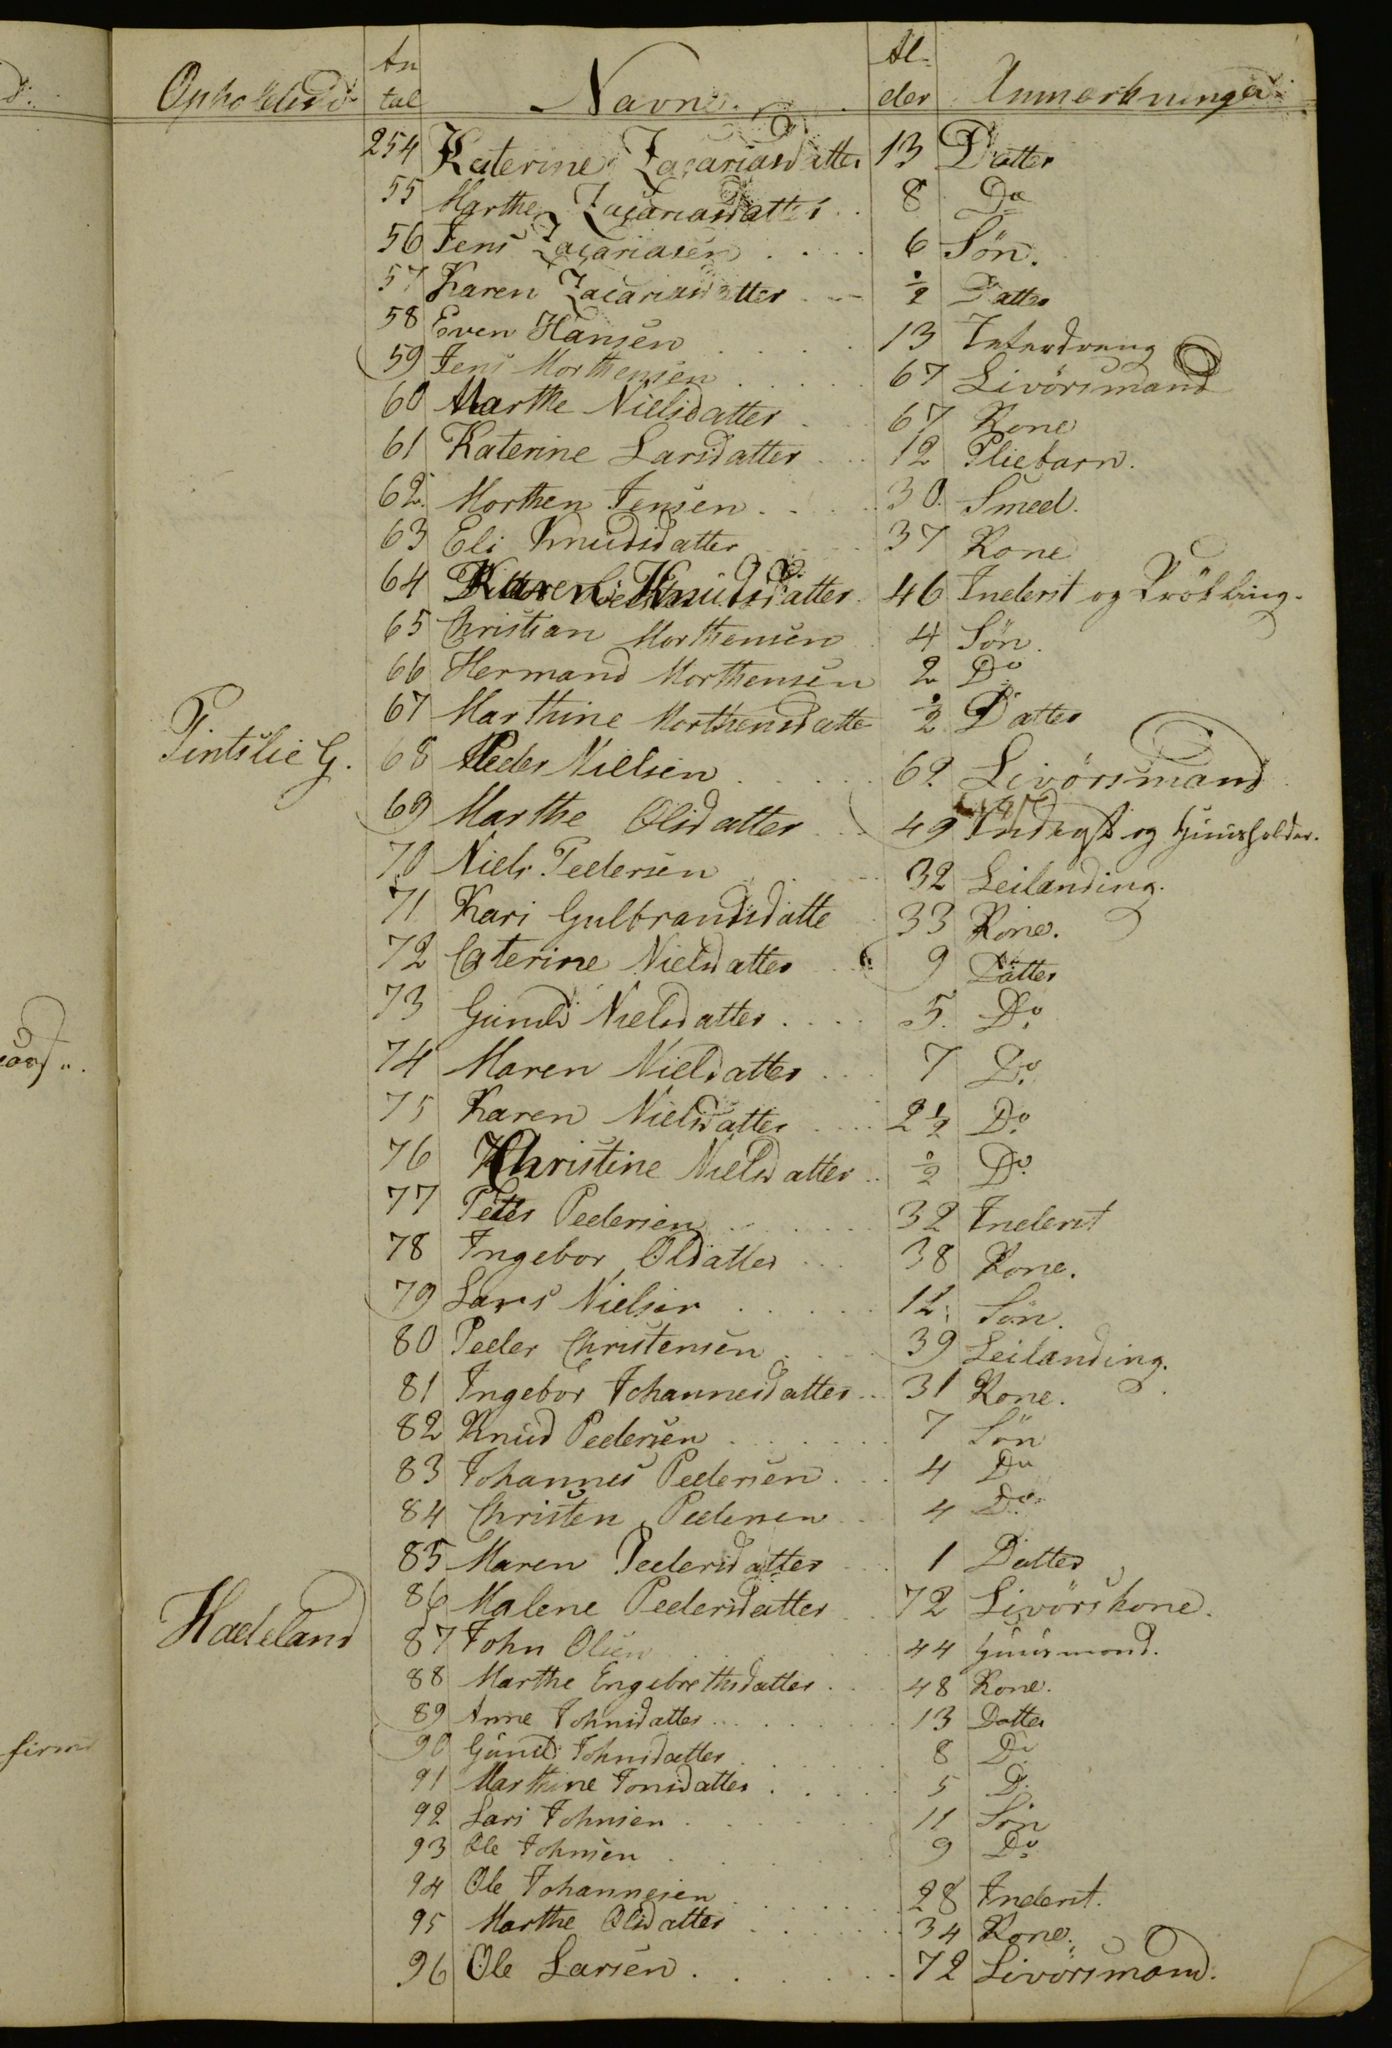 Opholdsst. An tal Navne. Al- der Anmærkninger
254 Katerine Zacariasdatter 13 Datter
55 Marthe Zacariasdatter 8 Do
56 Jens Zacariasen 6 Søn.
57 Karen Zacariasdatter ½ Datter
58 Even Hansen 13
59 Jens Morthensen 67 Livörsmand
60 Marthe Nielsdatter 67 Kone
61 Katerine Larsdatter 12 Pliebarn.
62. Morthen Jensen 30. Smed.
63 Eli Knudsdatter 37 Kone
64 Karen Knudsdatter 46 Inderst og Krökling.
65 Christian Morthensen 4 Søn.
66 Hermand Morthensen 2 Do
67 Marthine Morthensdatte ½ Datter
Pintslie G. 68 Peder Nielsen 62 Livörsmand
69 Marthe Olsdatter 49 Inderst og Huusholder.
70 Niels Pedersen 32 Leilænding.
71 Kari Gulbrandsdatte 33 Kone.
72 Caterine Nielsdatter 9 Datter
73 Gunild Nielsdatter 5. Do
74 Maren Nielsdatter 7 Do
75 Karen Nielsdatter 2½ Do
76 Christine Nielsdatter ½ Do
77 Peter Pedersen 32 Inderst
78 Ingebor Olsdatter 38 Kone.
79 Lars Nielsen 12. Søn.
80 Peder Christensen 39 Leilænding.
81 Ingebor Johannesdatter 31 Kone.
82 Knud Pedersen 7 Søn
83 Johannes Pedersen 4 Do
84 Christen Pedersen 4 Do
85 Maren Pedersdatter 1 Datter
86 Malene Pedersdatter 72 Livörskone.
Hadeland 87 John Olsen 44 Huusmand.
88 Marthe Engebrethsdatter 48 Kone.
89 Anne Johnsdatter 13 Datter
90 Gunild Johnsdatter 8 Do
91 Marthine Jonsdatter 5 D.
92 Lars Johnsen 11 Søn
93 Ole Johnsen 9 Do
94 Ole Johannesen 28 Inderst.
95 Marthe Olsdatter 34 Kone.
96 Ole Larsen 72 Livörsmand.